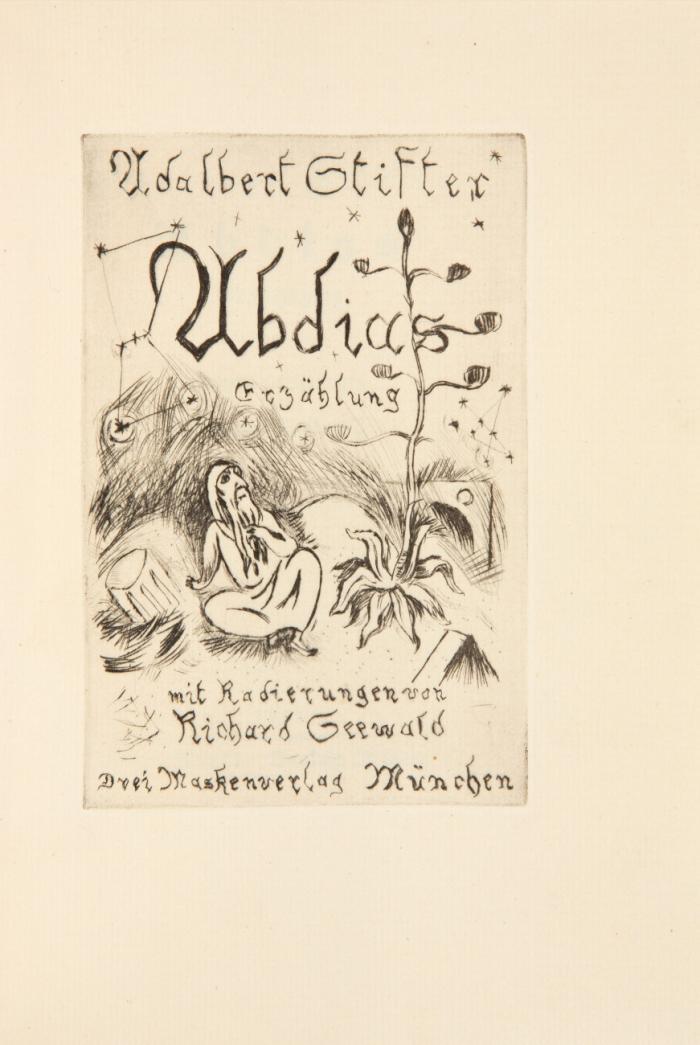 Adalbert Stifter
Abdias
Erzählung
mit Radierungen von
Richard Seewald
Drei Maskenverlag München